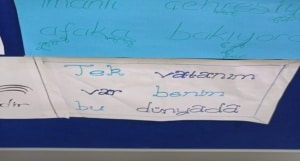 afaka bakıyor
Tek vatanım
var benim
bu dünyada